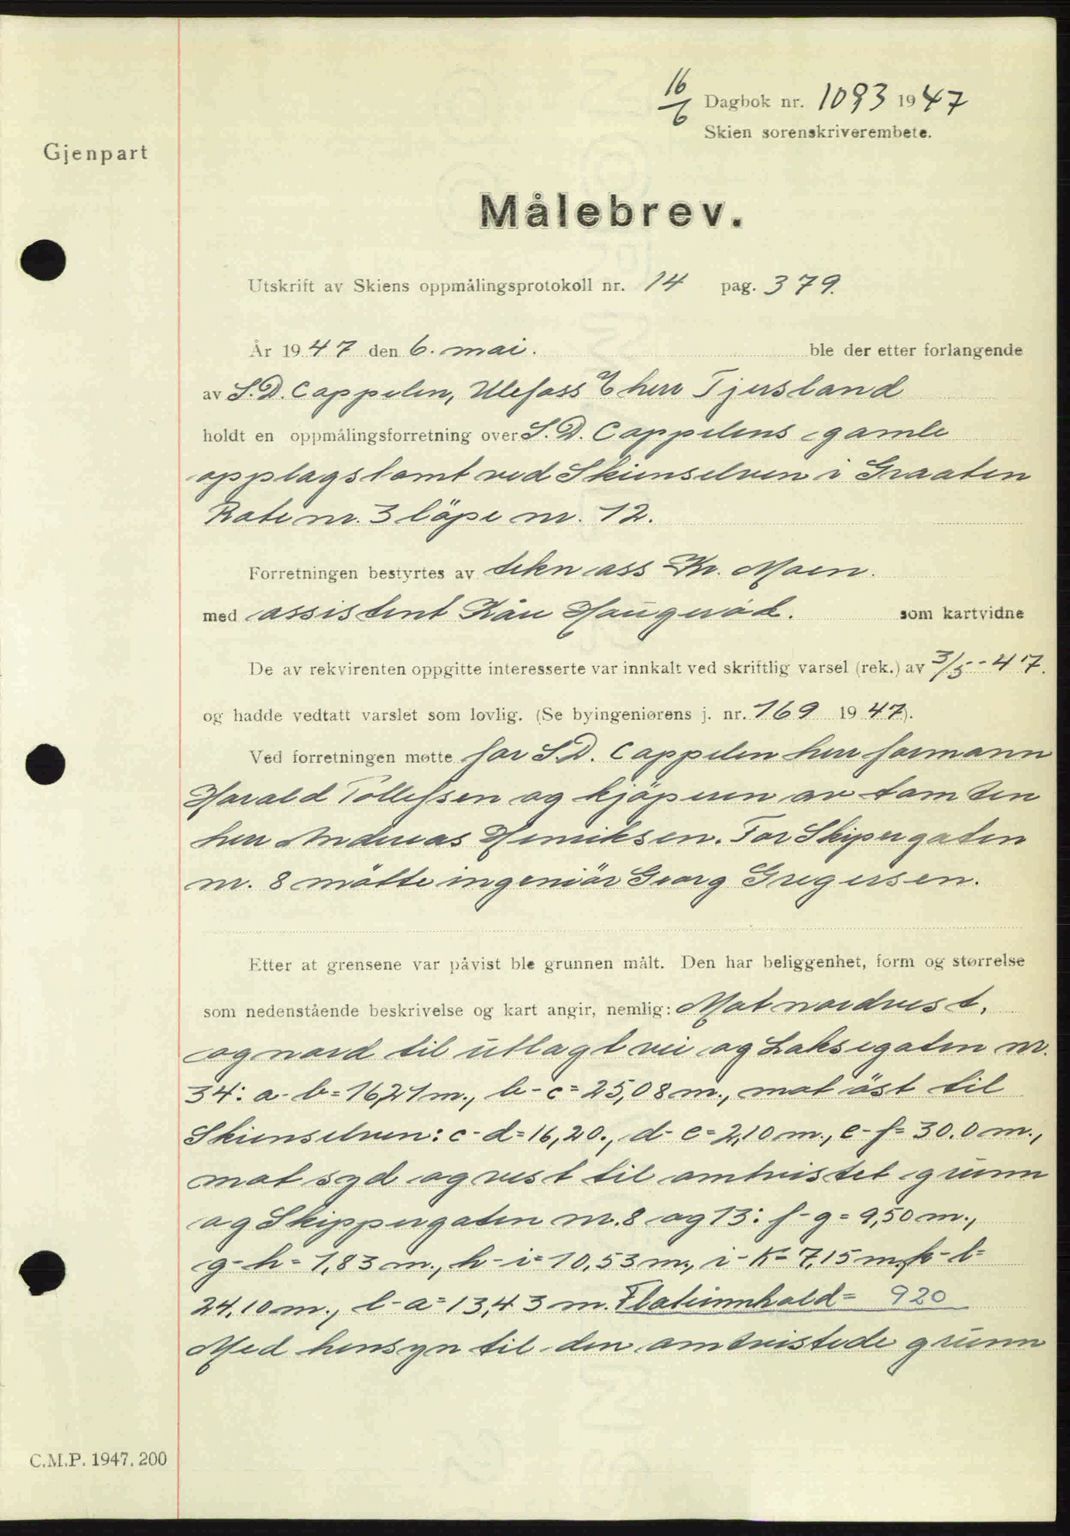 16/6 Dagbok nr. 1093 1947
Skien sorenskriverembete.
Gjenpart
Målebrev.
Utskrift av Skiens oppmålingsprotokoll nr. 14 pag. 379.
År 1947 den 6. mai. ble der etter forlangende
av S.D. Cappelen, Ulefoss herr Tjersland
holdt en oppmålingsforretning over S.D. Cappelens gamle
opplagstomt ved Skienselven i Graaten
Rode nr. 3 löpe nr. 12.
Forretningen bestyrtes av tekn ass Kr. Moen.
med assistent Kåre Haugeröd. som kartvidne
De av rekvirenten oppgitte interesserte var innkalt ved skriftlig varsel (rek.) av 3/5-47.
og hadde vedtatt varslet som lovlig. (Se byingeniørens j. nr. 169 1947).
Ved forretningen møtte for S.D. Cappelen herr formann
Harald Tollefsen og kjöperen av tomten
herr Andreas Henriksen. For Skipergaten
nr. 8 mötte ingeniör Georg Gregersen.
Etter at grensene var påvist ble grunnen målt. Den har beliggenhet, form og størrelse
som nedenstående beskrivelse og kart angir, nemlig: Mot nordvest,
og nord til utlagt vei og Laksegaten nr.
34: a-b=16,21m., b-c=25,08m., mot öst til
Skienselven: c-d=16,20., d-e=2,10m., e-f=30.0m.,
mot syd og vest til omtvistet grunn
og Skippergaten nr. 8 og 13: f-g=9,50m.,
g-h=1,83m., h-i=10,53m., i-k=7,15m., k-l=
24,10m., l-a=13,43m. Flateinnhold= 920
Med hensyn til den omtvistede grunn
C.M.P. 1947. 200